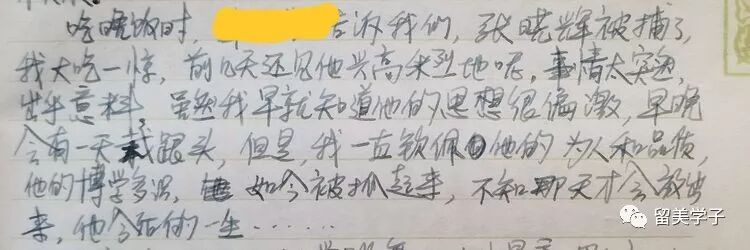 吃晚饭时，告诉我们，张晓辉被捕了，
我大吃一惊，前几天还见他兴高采烈地呢，事情太突然，
出乎意料，虽然我早就知道他的思想很偏激，早晚
会有一天栽跟头，但是，我一直钦佩他的为人和品质，
他的博学多识，如今被抓起来，不知那天才会放出
来，他今后的一生……
留美学子